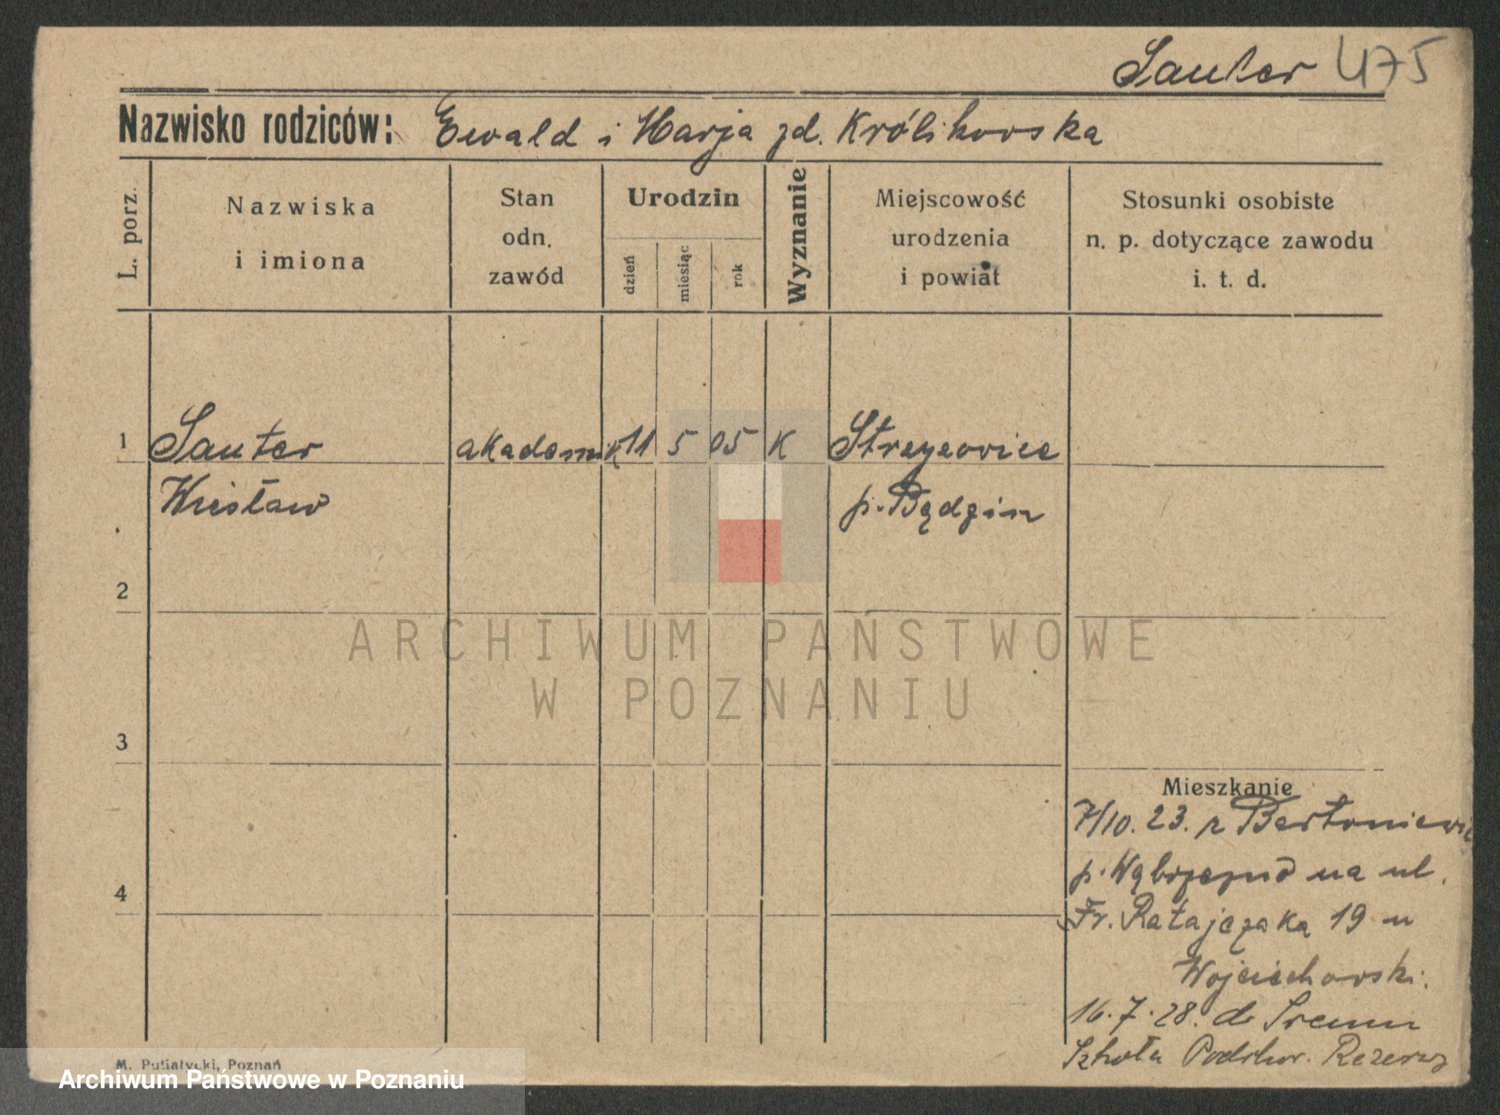 Sauter 475
Nazwisko rodziców: Ewald i Marja zd. Królikowska
L. porz.
Nazwiska
i imiona
Stan
odn.
zawód
Urodzin
dzień
miesiąc
rok
Wyznanie
Miejscowość
urodzenia
i powiat
Stosunki osobiste
n. p. dotyczące zawodu
i. t. d.
1 Sauter akademik 11 5 05 K Strzyżowice
Wiesław p. Będzin
2
ARCHIWUM PAŃSTWOWE
W POZNANIU
3
Mieszkanie
7/10. 23. z
p. Wąbrzeźno na ul.
4
Fr. Ratajczaka 19 u
Wojciechowski.
16.7.28. do Śremu
Szkoła Podchor. Rezerwy
M. Putiatycki, Poznań
Archiwum Państwowe w Poznaniu